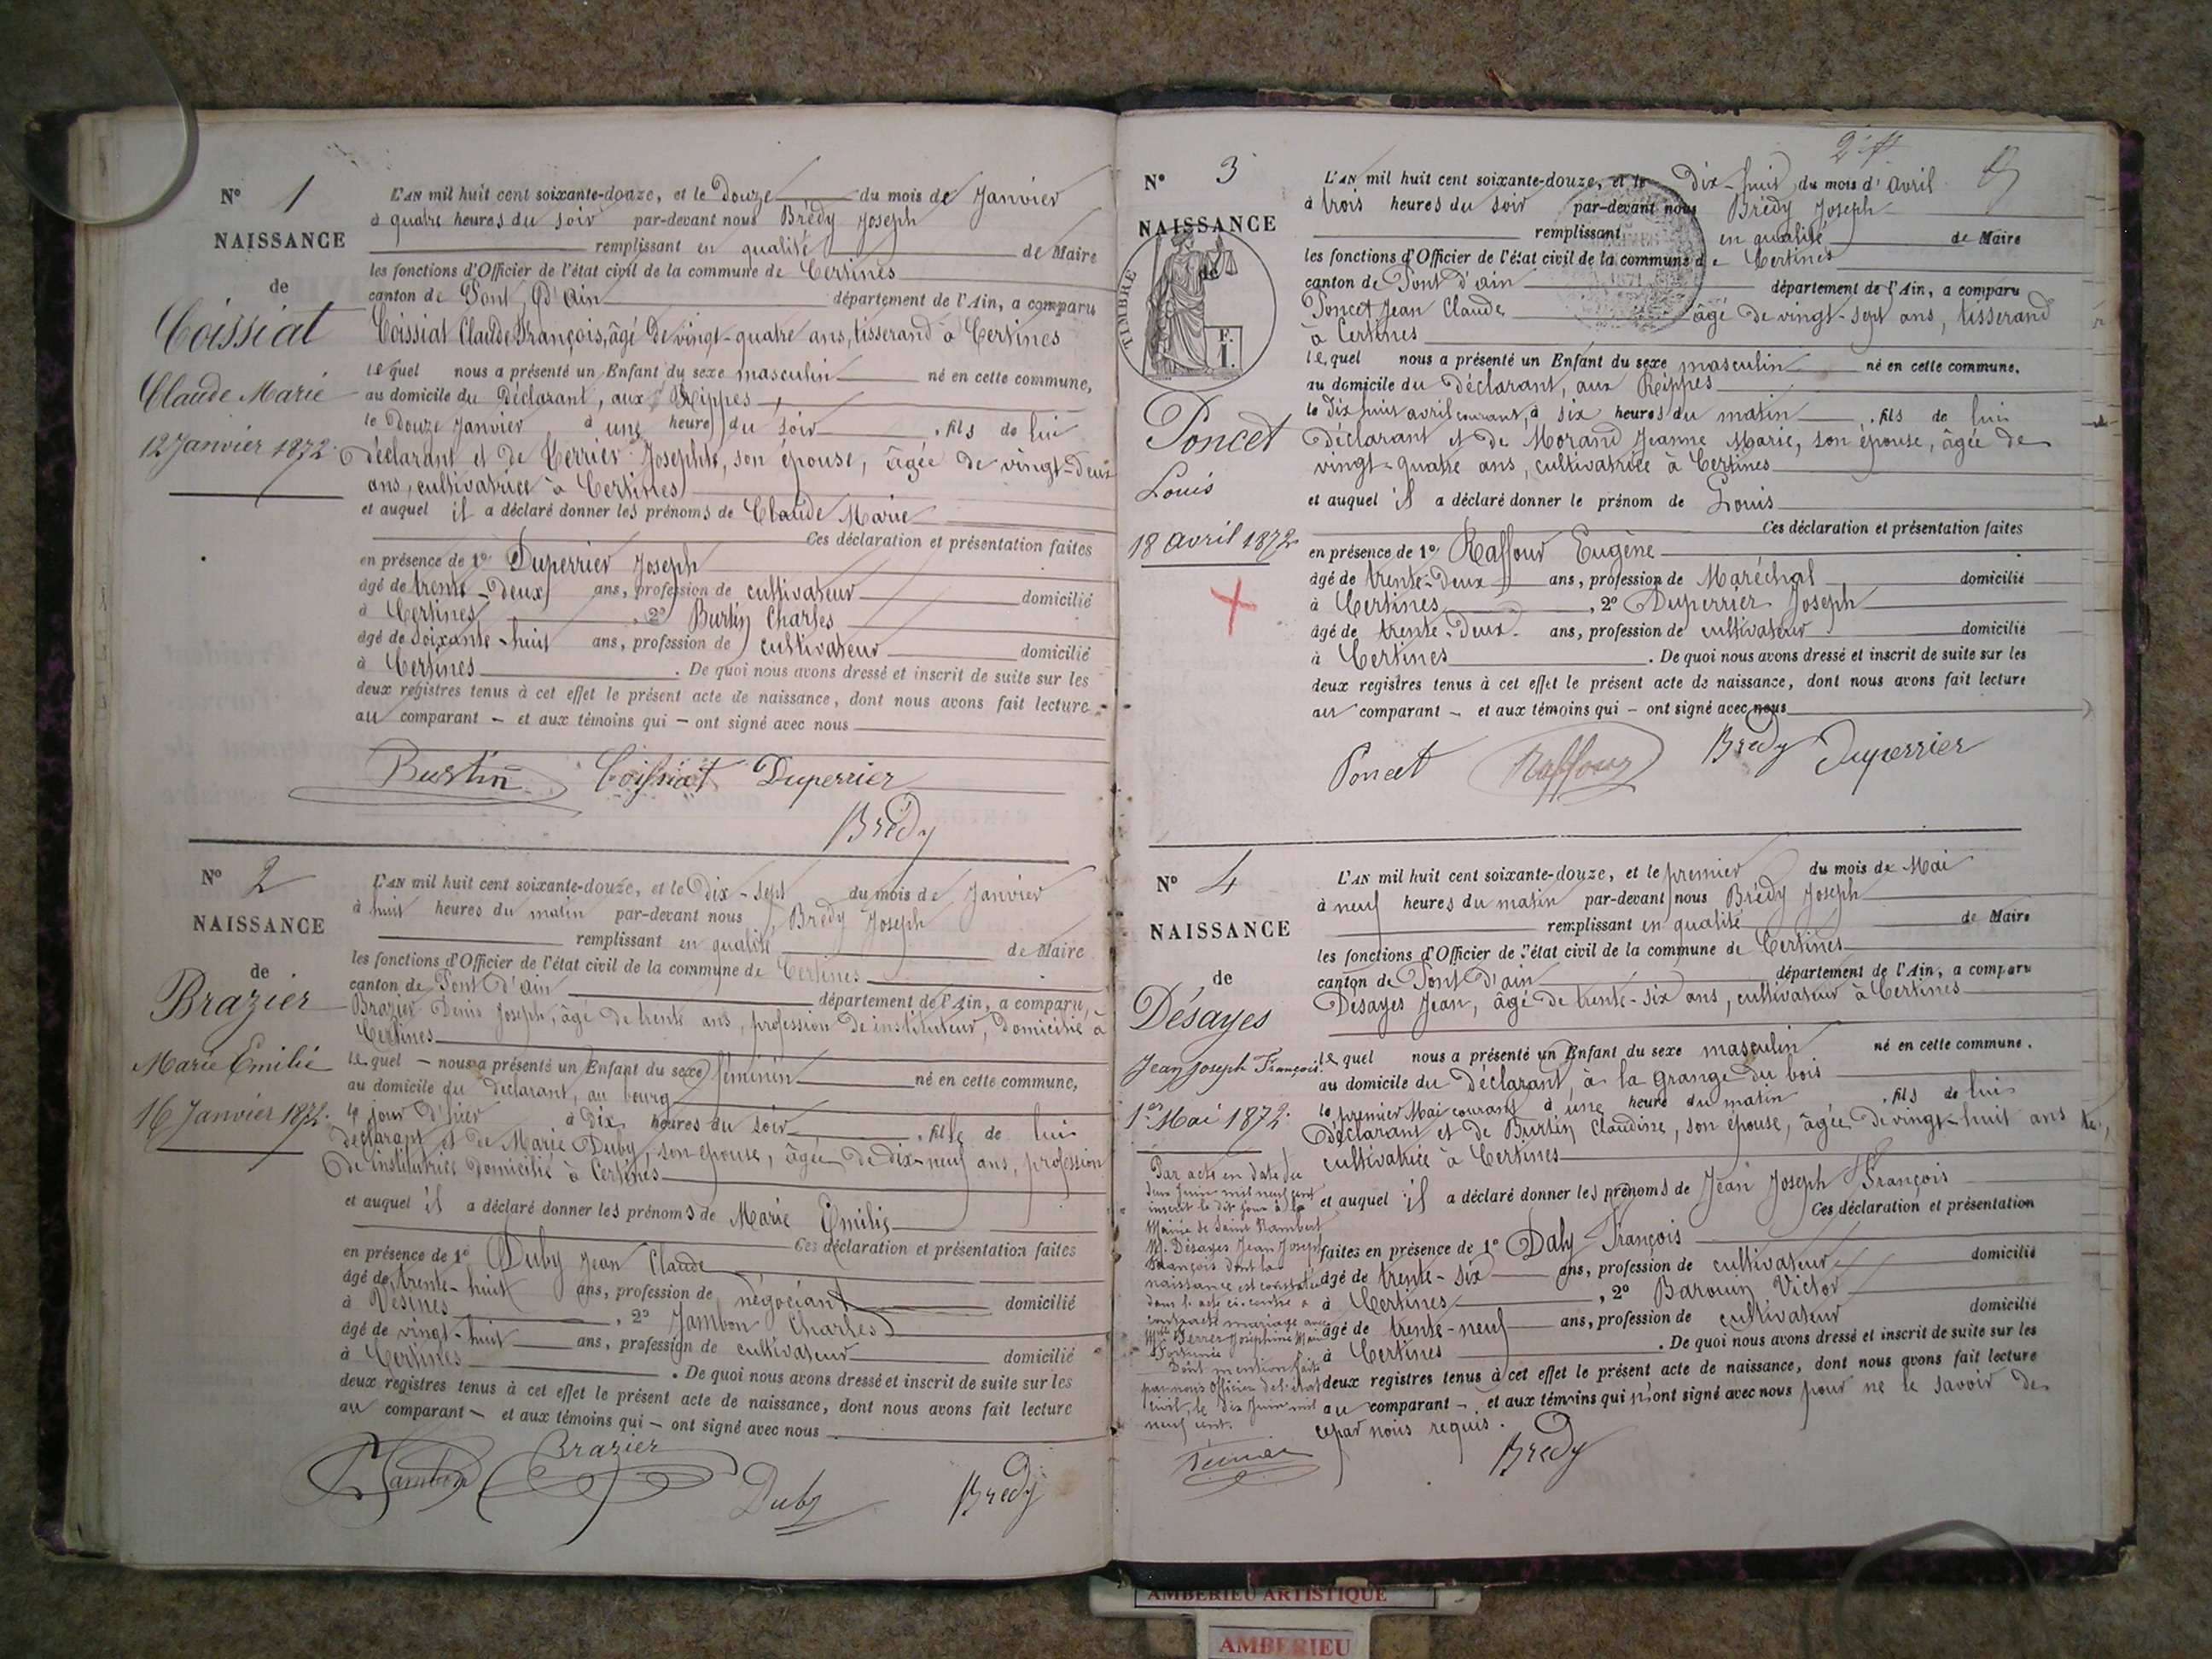 N° 1
NAISSANCE
de
Coissiat
Claude Marie
12 Janvier 1872.
L'AN mil huit cent soixante-douze, et le Douze du mois de Janvier
à quatre heures du soir par-devant nous Brédy Joseph
remplissant en qualité de Maire
les fonctions d'Officier de l'état civil de la commune de Certines
canton de Pont d'ain département de l'Ain, a comparu
Coissiat Claude François, âgé de vingt-quatre ans, tisserand à Certines
lequel nous a présenté un Enfant du sexe masculin né en cette commune,
au domicile du Déclarant, aux Rippes
le Douze Janvier à une heure du soir, fils de lui
déclarant et de Terrier Josephte, son épouse, âgée de vingt-deux
ans, cultivatrice à Certines
et auquel il a déclaré donner les prénoms de Claude Marie
Ces déclaration et présentation faites
en présence de 1° Duperrier Joseph
âgé de trente-deux ans, profession de cultivateur domicilié
à Certines, 2° Burtin Charles
âgé de soixante-huit ans, profession de cultivateur domicilié
à Certines. De quoi nous avons dressé et inscrit de suite sur les
deux registres tenus à cet effet le présent acte de naissance, dont nous avons fait lecture
au comparant – et aux témoins qui – ont signé avec nous
Burtin Coissiat Duperrier
Brédy
N° 2
NAISSANCE
de
Brazier
Marie Emilie
16 Janvier 1872.
L'AN mil huit cent soixante-douze, et le Dix-sept du mois de Janvier
à huit heures du matin par-devant nous Brédy Joseph
remplissant en qualité de Maire
les fonctions d'Officier de l'état civil de la commune de Certines
canton de Pont d'ain département de l'Ain, a comparu,
Brazier Denis Joseph, âgé de trente ans, profession de instituteur, domicilié à
Certines
lequel – nous a présenté un Enfant du sexe féminin né en cette commune,
au domicile du déclarant, au bourg
le jour d'hier à dix heures du soir, fille de lui
déclarant et de Marie Duby, son épouse, âgée de dix-neuf ans, profession
de institutrice domicilié à Certines
et auquel il a déclaré donner les prénoms de Marie Emilie
Ces déclaration et présentation faites
en présence de 1° Duby Jean Claude
âgé de trente-huit ans, profession de négociant domicilié
à Vesines, 2° Jambon Charles
âgé de vingt-huit ans, profession de cultivateur domicilié
à Certines. De quoi nous avons dressé et inscrit de suite sur les
deux registres tenus à cet effet le présent acte de naissance, dont nous avons fait lecture
au comparant – et aux témoins qui – ont signé avec nous
Jambon Brazier Duby Brédy
2e f.
N° 3
NAISSANCE
de
TIMBRE
F.
1.
Poncet
Louis
18 avril 1872
L'AN mil huit cent soixante-douze, et le Dix-huit du mois d'avril
à trois heures du soir par-devant nous Brédy Joseph
remplissant en qualité de Maire
les fonctions d'Officier de l'état civil de la commune de Certines
canton de Pont d'ain département de l'Ain, a comparu
Poncet Jean Claude âgé de vingt-sept ans, tisserand
à Certines
lequel nous a présenté un Enfant du sexe masculin né en cette commune.
au domicile du déclarant, aux Rippes
le dix huit avril courant, à six heures du matin, fils de lui
déclarant et de Morand Jeanne Marie, son épouse, âgée de
vingt-quatre ans, cultivatrice à Certines
et auquel il a déclaré donner le prénom de Louis
Ces déclaration et présentation faites
en présence de 1° Raffour Eugène
âgé de trente-deux ans, profession de Maréchal domicilié
à Certines, 2° Duperrier Joseph
âgé de trente-deux ans, profession de cultivateur domicilié
à Certines. De quoi nous avons dressé et inscrit de suite sur les
deux registres tenus à cet effet le présent acte de naissance, dont nous avons fait lecture
au comparant – et aux témoins qui – ont signé avec nous
Poncet Raffour Brédy Duperrier
N° 4
NAISSANCE
de
Désayes
Jean Joseph François.
1er Mai 1872.
L'AN mil huit cent soixante-douze, et le premier du mois de Mai
à neuf heures du matin par-devant nous Brédy Joseph
remplissant en qualité de Maire
les fonctions d'Officier de l'état civil de la commune de Certines
canton de Pont d'ain département de l'Ain, a comparu
Désayes Jean, âgé de trente-six ans, cultivateur à Certines
lequel nous a présenté un Enfant du sexe masculin né en cette commune.
au domicile du Déclarant, à la grange du bois
le premier Mai courant à une heure du matin, fils de lui
déclarant et de Burtin Claudine, son épouse, âgée de vingt-huit ans
cultivatrice à Certines
et auquel il a déclaré donner les prénoms de Jean Joseph François
Ces déclaration et présentation
faites en présence de 1° Daly François
âgé de trente-six ans, profession de cultivateur domicilié
à Certines, 2° Barouin Victor
âgé de trente-neuf ans, profession de cultivateur domicilié
à Certines. De quoi nous avons dressé et inscrit de suite sur les
deux registres tenus à cet effet le présent acte de naissance, dont nous avons fait lecture
au comparant – et aux témoins qui n'ont signé avec nous pour ne le savoir de
ce par nous requis.
Brédy
Par acte en date du
deux Juin mil neuf cent
inscrit le dit jour à la
Mairie de Saint Rambert
M. Désayes Jean Joseph
François dont la
naissance est constatée
dans l'acte ci-contre a
contracté mariage avec
Mlle Ferrer Joséphine
Fortunée
Dont mention faite
par nous Officier de l'état
civil, le dix Juin mil
neuf cent.
AMBERIEU ARTISTIQUE
AMBERIEU